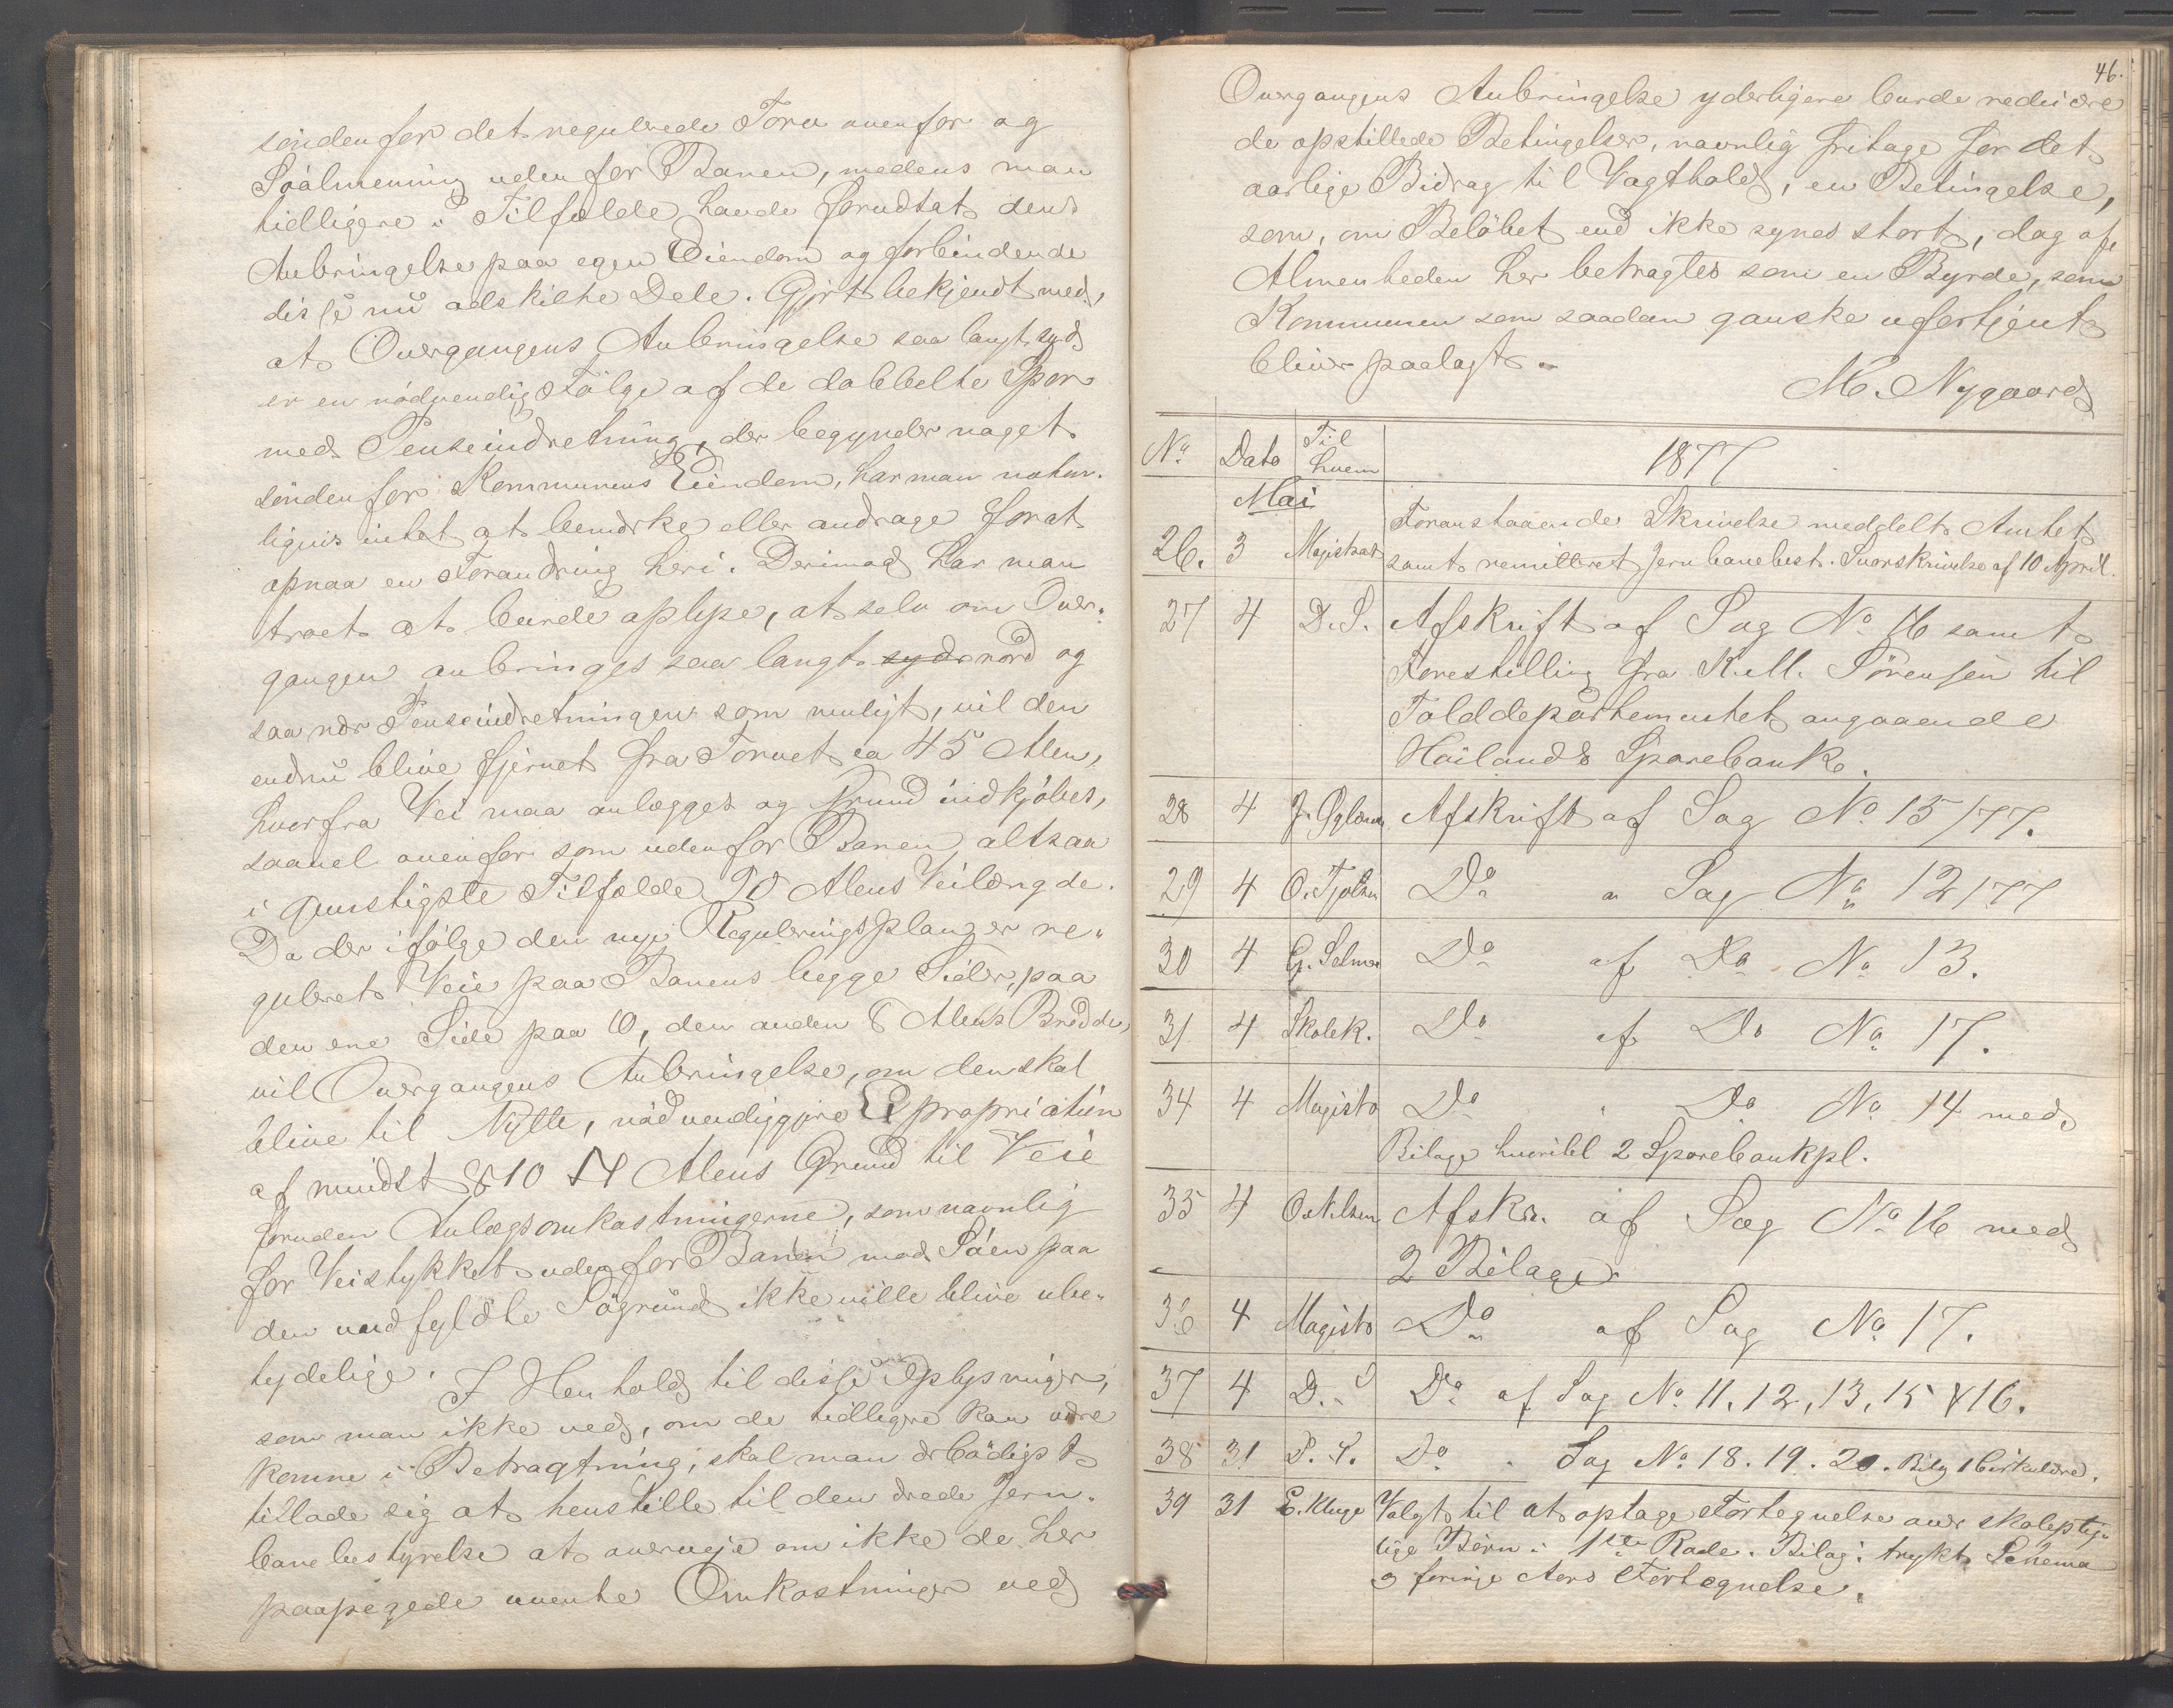 søndenfor det regulerede Torv ovenfor og
Søalmening udenfor Banen, medens man
tidligere i Tilfælde havde forudsat dens
Anbringelse paa egen Eiendom og forbindende
disse nu adskilte Dele. Gjort bekjendt med,
at Overgangens Anbringelse saa langt syd
er en nødvendig Følge af de dobbelte Spor
med Penseindretning, der begynder noget
søndenfor Kommunens Eiendom, har man natur-
ligvis intet at bemærke eller andrage forat
opnaa en Forandring heri. Derimod har man
troet at burde oplyse, at selv om Over-
gangen anbringes saa langt syd nord og
saa nær Penseindretningen som muligt, vil den
endnu blive fjernet fra Torvet ca 45 Alen,
hvorfra Vei maa anlægges og Grund indkjøbes,
saavel ovenfor som udenfor Banen altsaa
i gunstigste Tilfælde 90 Alens Veilængde.
Da der ifølge den nye Reguleringsplan er re-
guleret Veie paa Banens begge Sider, paa
den ene Side paa 10, den anden 8 Alens Bredde,
vil Overgangens Anbringelse, om den skal
blive til Nytte, nødvendiggjøre Expropriation
af mindst 810 □ Alens Grund til Veie
foruden Anlægsomkostningerne, som navnlig
for Veistykket udenfor Banen mod Søen paa
den uudfyldte Søgrund ikke ville blive ube-
tydelige.
I Henhold til disse Oplysninger,
som man ikke ved, om de tidligere kan være
komne i Betragtning, skal man ærbødigst
tillade sig at henstille til den ærede Jern-
banebestyrelse at overveje om ikke de her
paapegede uventede Omkostninger ved
46.
Overgangens Anbringelse yderligere burde reducere
de opstillede Betingelser, navnlig fritage for det
aarlige Bidrag til Vagthold, en Betingelse,
som, om Beløbet end ikke synes stort, dog af
Almenheden her betragtes som en Byrde, som
Kommunen som saadan ganske ufortjent
bliver paalagt.
M. Nygaard
No Dato Til hvem 1877
Mai
26. 3 Magistrat Foranstaaende Skrivelse meddelt Amtet
samt remitteret Jernbanebest. Svarskrivelse af 10 April.
27 4 D.S. Afskrift af Sag No 16 samt
Forestilling fra K. M. Sørensen til
Tolddepartementet angaaende
Høilands Sparebank.
28 4 J. Oglænd Afskrift af Sag No 15/77.
29 4 O. Tjølsen Do " Sag No 12/77
30 4 G. Selmer Do af Do No 13.
31 4 Skolek. Do af Do No 17.
34 4 Magistr Do " Do No 14 med
Bilage hvoribl 2 Sparebankpl.
35 4 O. Nilsen Afskr. af Sag No 16 med
2 Bilage
36 4 Magistr Do af Sag No 17.
37 4 D. S Do af Sag No 11, 12, 13, 15 & 16.
38 31 Do " Sag No 18. 19. 20. Bilag 1 Cirkulære.
39 31 E. Kluge Valgt til at optage Fortegnelse over skolepligt-
lige Børn i 1ste Rode. Bilag: trykt Schema
og forrige Aars Fortegnelse.